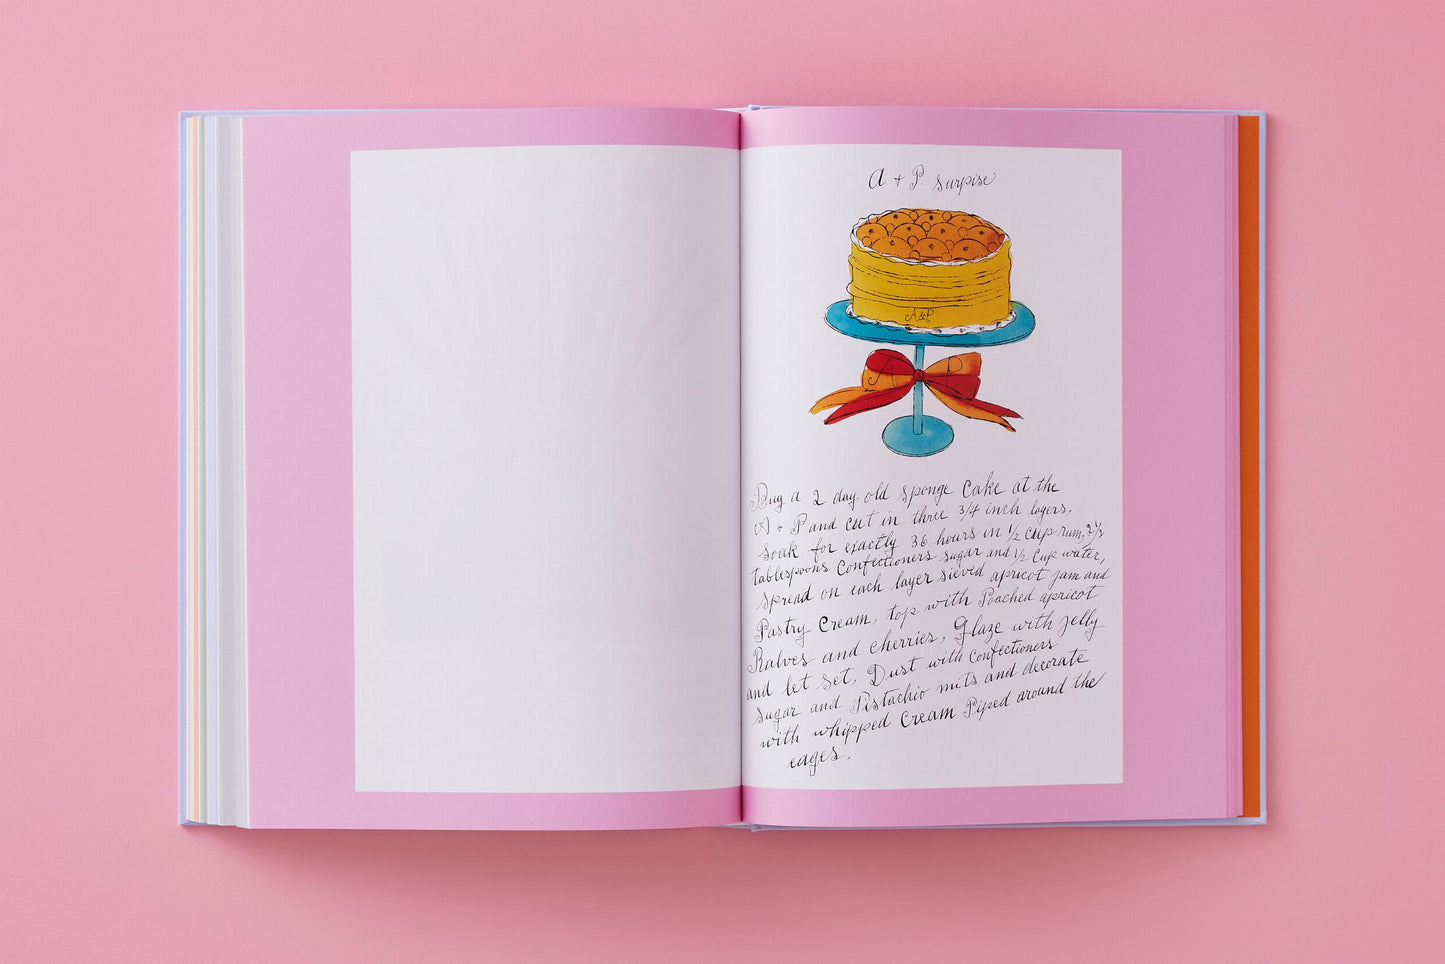 A + P. Surpise
A & P
A P
Buy a 2 day old sponge Cake at the
A + P and cut in three 3/4 inch layers,
soak for exactly 36 hours in 1/2 cup rum, 2 1/2
tablespoons Confectioners sugar and 1/2 Cup water,
spread on each layer sieved apricot jam and
Pastry Cream, top with Poached apricot
Halves and cherries, Glaze with jelly
and let set, Dust with Confectioners
sugar and Pistachio nuts and decorate
with whipped Cream Piped around the
edges.